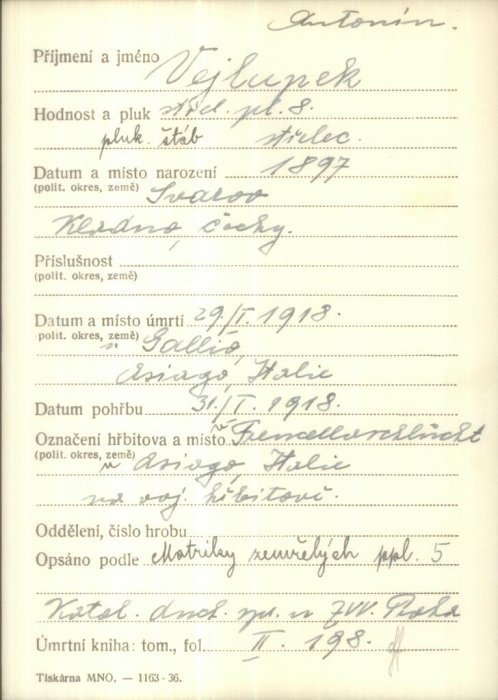 Antonín.
Příjmení a jméno Vejlupek
Hodnost a pluk střel. pl. 8.
pluk. štáb střelec.
Datum a místo narození 1897
(polit. okres, země) Svarov
Kladno, Čechy.
Příslušnost
(polit. okres, země)
Datum a místo úmrtí 29/I. 1918.
(polit. okres, země) u Gallio,
Asiago, Italie
Datum pohřbu 31/I. 1918.
Označení hřbitova a místo v Frenzellaschlucht
(polit. okres, země) u Asiago, Italie
na voj. hřbitově.
Oddělení, číslo hrobu
Opsáno podle Matriky zemřelých ppl. 5
Katol. duch. spr. u ZVV. Praha
Úmrtní kniha: tom., fol. II. 198.
Tiskárna MNO. — 1163-36.